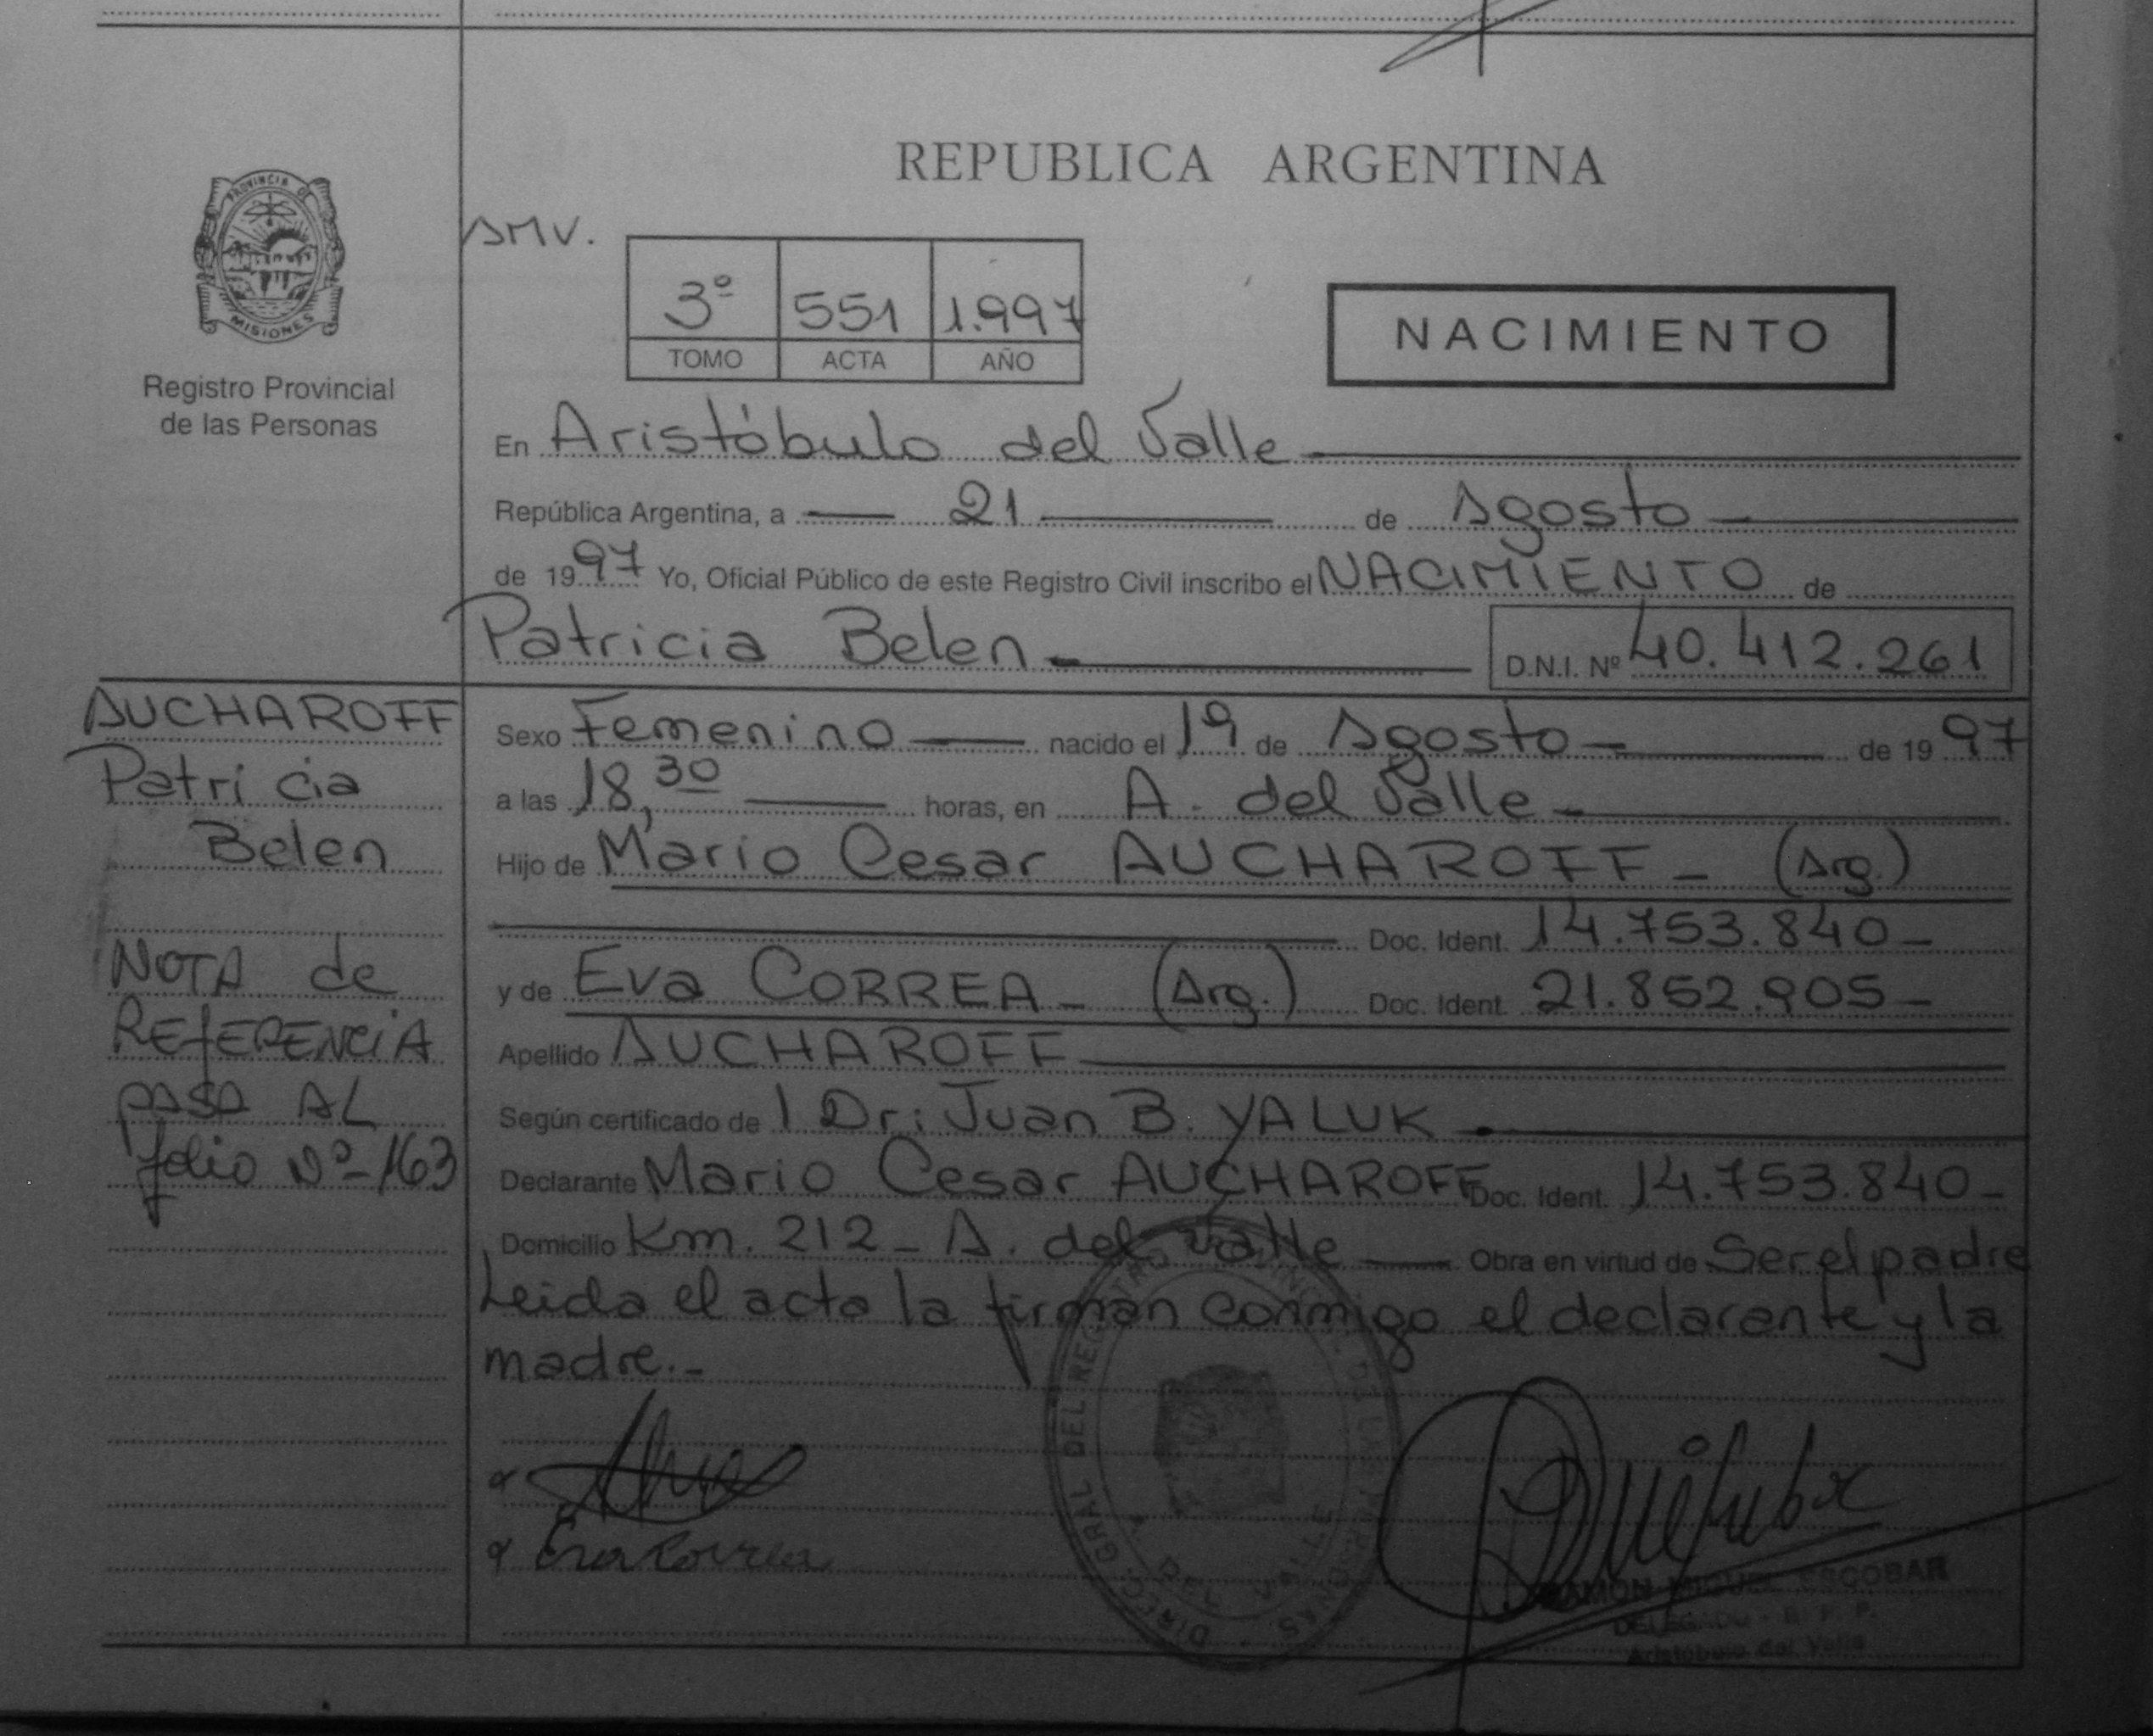 REPUBLICA ARGENTINA
PROVINCIA DE
MISIONES
Registro Provincial
de las Personas
SMV.
3º 551 1.997
TOMO ACTA AÑO
NACIMIENTO
En Aristóbulo del Valle
República Argentina, a 21 de Agosto
de 1997 Yo, Oficial Público de este Registro Civil inscribo el NACIMIENTO de
Patricia Belen D.N.I. Nº 40.412.261
AUCHAROFF
Patricia
Belen
NOTA de
REFERENCIA
PASA AL
folio Nº-163
Sexo Femenino nacido el 19 de Agosto de 1997
a las 18,30 horas, en A. del Valle
Hijo de Mario Cesar AUCHAROFF - (Arg.)
Doc. Ident. 14.753.840-
y de Eva CORREA - (Arg.) Doc. Ident. 21.852.905-
Apellido AUCHAROFF
Según certificado de l Dr: Juan B. YALUK
Declarante Mario Cesar AUCHAROFF Doc. Ident. 14.753.840-
Domicilio Km. 212 - A. del Valle Obra en virtud de Ser el padre
Leida el acta la firman conmigo el declarante y la
madre.-
Eva Correa
DIREC. GRAL DEL REGISTRO PROVINCIAL DE LAS PERSONAS
VALLE
RAMON MIGUEL ESCOBAR
DELEGADO - R. P. P.
Aristóbulo del Valle